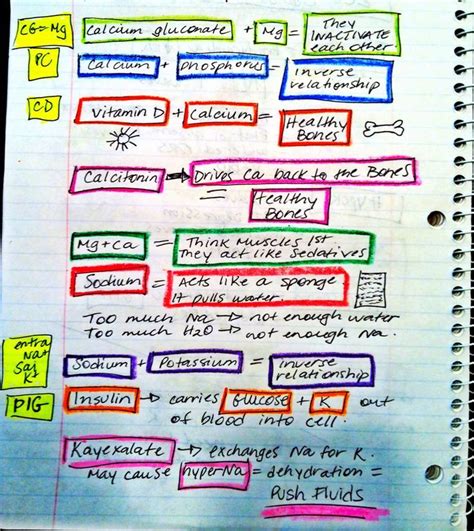 CG=Mg Calcium gluconate + Mg = They
INACTIVATE
each other
PC Calcium + phosphorus = Inverse
relationship
CD Vitamin D + Calcium = Healthy
Bones
Calcitonin → Drives Ca back to the Bones
= Healthy
Bones
Mg+Ca = Think Muscles 1st
They act like Sedatives
Sodium = Acts like a sponge
It pulls water.
Too much Na → not enough water
Too much H2O → not enough Na.
Na+
K+
Sodium + Potassium = Inverse
relationship
PIG Insulin → carries Glucose + K out
of blood into cell.
Kayexalate → exchanges Na for K.
May cause hyperNa = dehydration =
Push Fluids